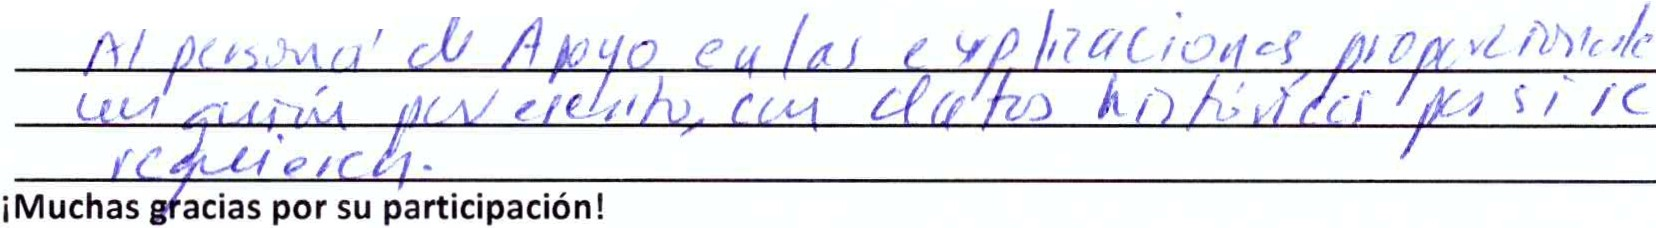 Al personal de Apoyo en las explicaciones, proporcionarle
un guión por escrito, con datos históricos por si se
requieren.
¡Muchas gracias por su participación!